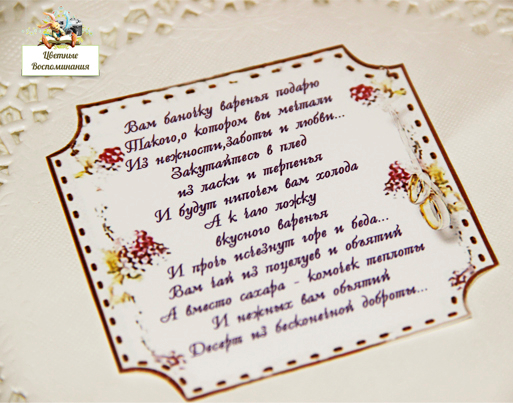 Цветные
Воспоминания
Вам баночку варенья подарю
Такого,о котором вы мечтали
Из нежности,заботы и любви...
Закутайтесь в плед
из ласки и терпенья
И будут нипочем вам холода
А к чаю ложку
вкусного варенья
И прочь исчезнут горе и беда...
Вам чай из поцелуев и объятий
А вместо сахара - комочек теплоты
И нежных вам объятий
Десерт из бесконечной доброты...